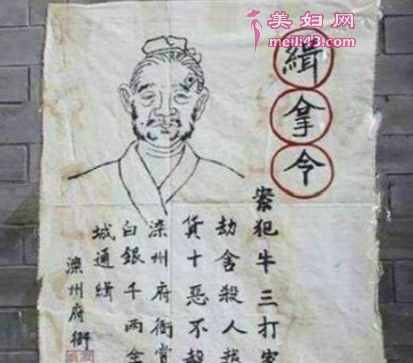 美妇网
meili43.com
缉拿令
案犯牛三打家
劫舍殺人
貨十惡不
滦州府衙賞
白銀千两全
城通緝
滦州府衙